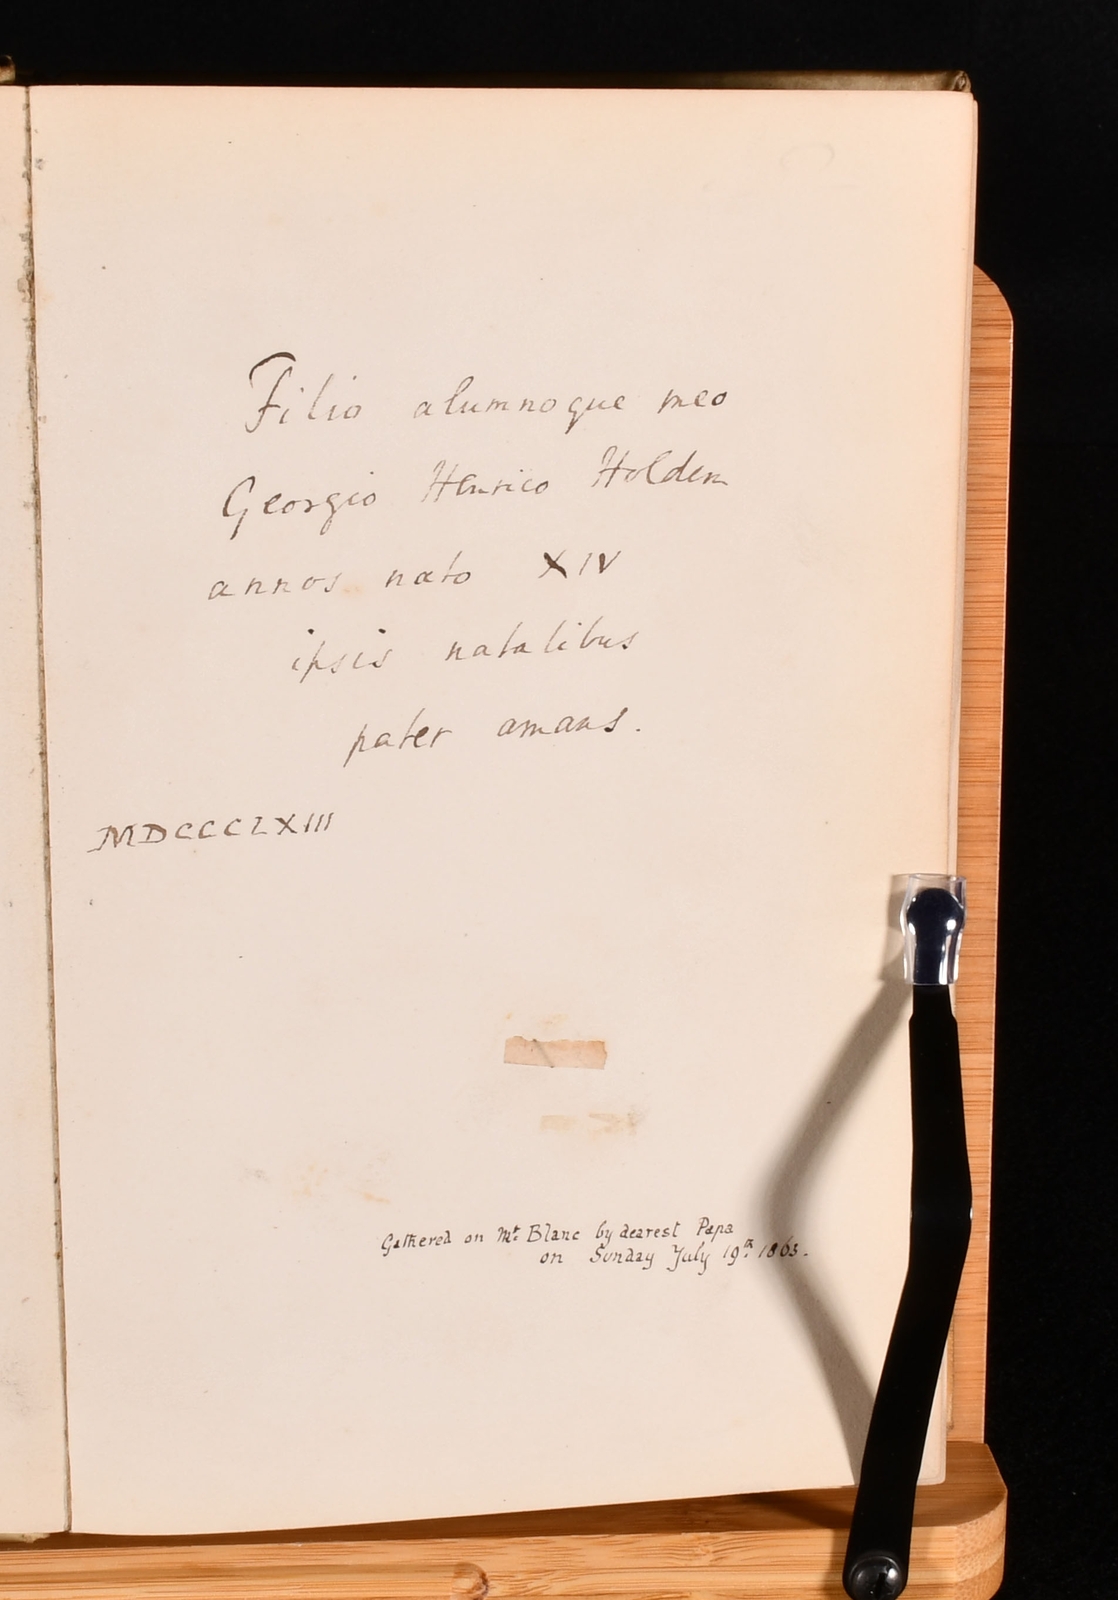 Filio alumnoque meo
Georgio Henrico Holden
annos nato XIV
ipsis natalibus
pater amans.
MDCCCLXIII
Gathered on Mt. Blanc by dearest Papa
on Sunday July 19th. 1863.